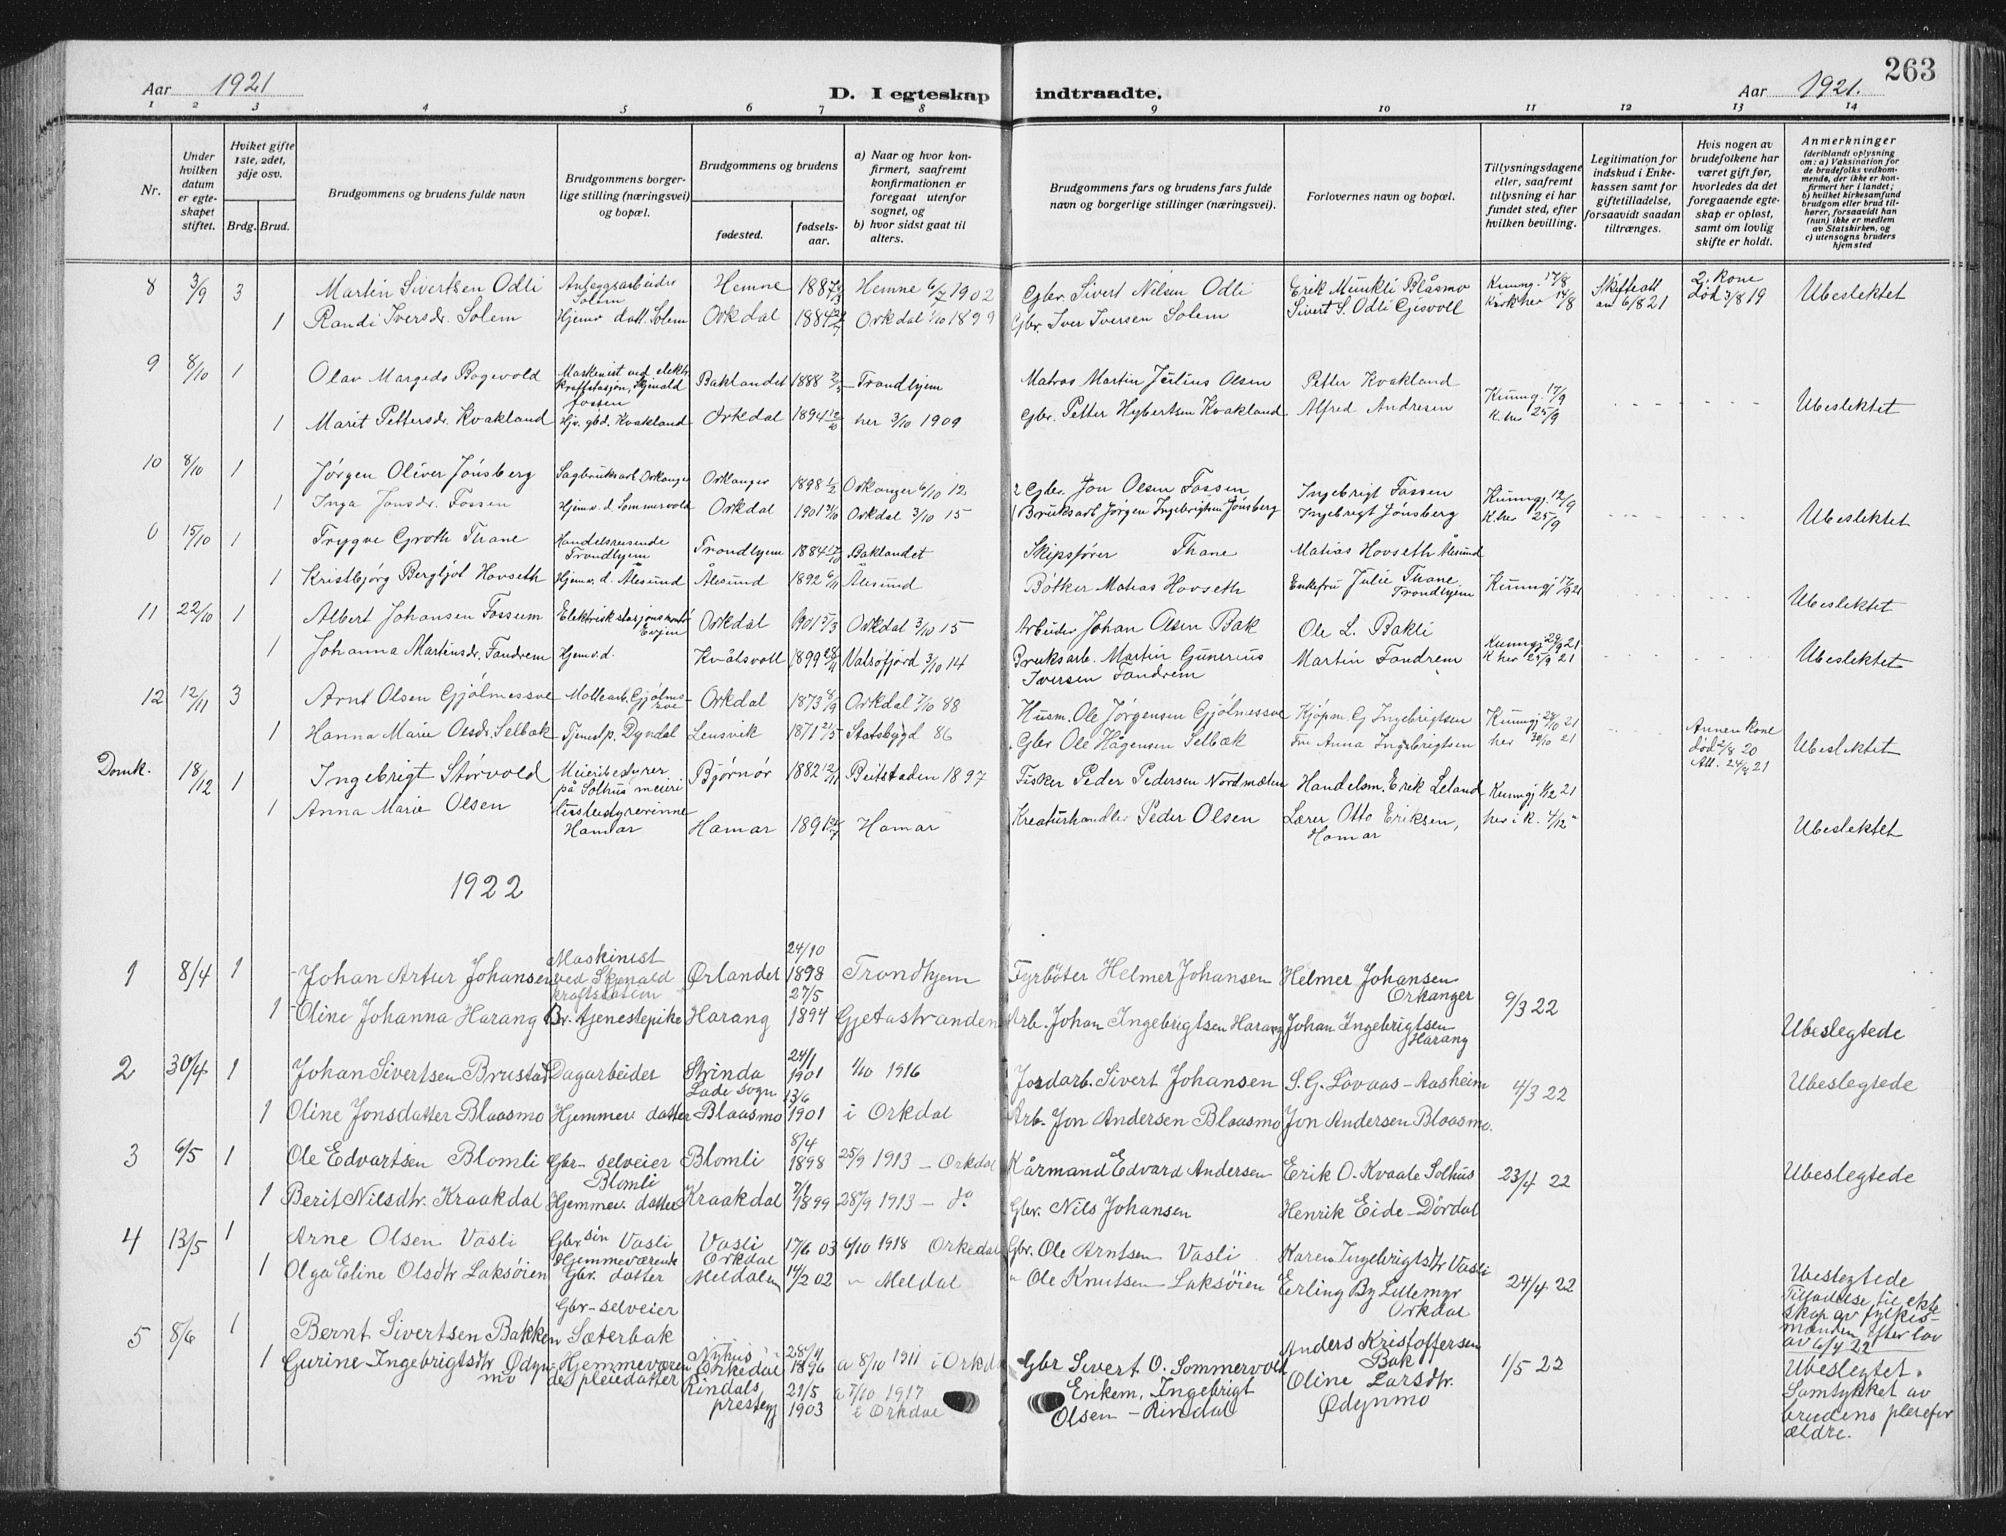 263
Aar 1921
D. I egteskap indtraadte.
Aar 1921.
1 2 3 4 5 6 7 8 9 10 11 12 13 14
Nr.
Under hvilken datum er egteskapet stiftet.
Hviket gifte 1ste, 2det, 3dje osv.
Brdg. Brud.
Brudgommens og brudens fulde navn
Brudgommens borgerlige stilling (næringsvei) og bopæl.
Brudgommens og brudens
fødested.
fødselsaar.
a) Naar og hvor konfirmert, saafremt konfirmationen er foregaat utenfor sognet, og
b) hvor sidst gaat til alters.
Brudgommens fars og brudens fars fulde navn og borgerlige stillinger (næringsvei).
Forlovernes navn og bopæl.
Tillysningsdagene eller, saafremt tillysning ei har fundet sted, efter hvilken bevilling.
Legitimation for indskud i Enkekassen samt for giftetilladelse, forsaavidt saadan tiltrænges.
Hvis nogen av brudefolkene har været gift før, hvorledes da det foregaaende egteskap er opløst, samt om lovlig skifte er holdt.
Anmerkninger
(deriblandt oplysning om: a) Vaksination for de brudefolks vedkommende, der ikke er konfirmert her i landet; b) hvilket kirkesamfund brudgom eller brud tilhører, forsaavidt han (hun) ikke er medlem av Statskirken, og c) utensogns bruders hjemsted
8 3/9 3 Martin Sivertsen Odli Anleggsarbeider Solem Hemne 1887 Hemne 6/7 1902 Gbr. Sivert Nilsen Odli Erik Munkli Blåsmo Kunng. 17/8 Skifteatt av 6/8 21 2. Kone død 3/8 19 Ubeslektet
1 Randi Iversdr. Solem Hjemv datt. Solem Orkdal 1884 Orkdal 1/10 1899 Gbr. Iver Iversen Solem Sivert S. Odli Gjisvoll Kirk her 14/8
9 8/10 1 Olav Margido Bogevold Maskinist ved elektr. kraftstasjon, Skjenald fossen Baklandet 1888 Trondhjem Matros Martin Julius Olsen Petter Kvakland Kunng. 17/9
1 Marit Pettersdr. Kvakland Hjv. gbd. Kvakland Orkdal 1894 12/10 her 3/10 1909 Gbr. Petter Hybertsen Kvakland Alfred Andresen K. her 25/9 Ubeslektet
10 8/10 1 Jørgen Oliver Jónsberg Sagbruksarb. Orkanger Orkanger 1898 1/2 Orkanger 6/10 12 2 Gbr. Jon Olsen Fossen Ingebrigt Fossen Kunng. 12/9
1 Inga Jonsdr. Fossen Hjemv. d. Sommervold Orkdal 1901 Orkdal 3/10 15 1 Bruksarb Jørgen Ingebrigtsen Jónsberg Ingebrigt Jónsberg K. her 25/9 Ubeslektet
0 15/10 1 Trygve Groth Thane Handelsreisende Trondhjem Trondhjem 1884 Baklandet Skipsfører Thane Matias Hovseth Ålesund
1 Kristbjørg Bergljot Hovseth Hjemv. d. Ålesund Ålesund 1892 6/11 Ålesund Bøtker Matias Hovseth Enkefru Julie Thane Trondhjem Kunngj 17/9 21 Ubeslektet
11 22/10 1 Albert Johansen Fossum Elektriskstasjonsmontør Evjen Orkdal 1901 5/3 Orkdal 3/10 15 Arbeider Johan Olsen Bak Ole L. Bakli Kunngj 29/9 21
1 Johanna Martinsdr. Fandrem Hjemv. d. Kvålsvoll 1899 28/11 Valsøfjord 3/10 14 Bruksarb. Martin Gunerius Iversen Fandrem Martin Fandrem K her 25/9 21 Ubeslektet
12 12/11 3 Arnt Olsen Gjølmessve Møllearb. Gjølmesve Orkdal 1873 8/9 Orkdal 7/10 88 Husm. Ole Jørgensen Gjølmessve Kjøpm. G Ingebrigtsen Kunngj 28/10 21
1 Hanna Marie Olsdr. Selbæk Tjenestp. Dyndal Lensvik 1871 21/5 Statsbygd 86 Gbr Ole Hågensen Selbæk Fru Anna Ingebrigtsen her 30/10 21 Annen Kone død 2/8 20 Att. 24/9 21 Ubeslektet
Domk. 18/12 1 Ingebrigt Størvold Meieribestyrer på Solhus meieri Bjørnør 1882 12/11 Beitstaden 1897 Fisker Peder Pedersen Nordmælen Handelsm. Erik Leland Kunngj 1/12 21
1 Anna Marie Olsen Husbestyrerinne Hamar Hamar 1891 Hamar Kreaturhandler Peder Olsen Lærer Otto Eriksen, Hamar her i K. 4/12 " Ubeslektet
1922
1 8/4 1 Johan Artur Johansen Maskinist ved Skjenald kraftstation Ørlandet 24/10 1898 Trondhjem Fyrbøter Helmer Johansen Helmer Johansen Orkanger 9/3 22
1 Oline Johanna Harang Br. tjenestepike Harang 27/5 1894 Gjetastranden Arb. Johan Ingebrigtsen Harang Johan Ingebrigtsen Harang Ubeslegtede
2 30/4 1 Johan Sivertsen Brustad Dagarbeider Strinda Lade sogn 24/1 1901 1/10 1916 Jordarb. Sivert Johansen S. G. Lövaas - Aasheim 4/3 22 Ubeslegtede
1 Oline Jonsdatter Blaasmo Hjemmev datter Blaasmo 13/6 1901 i Orkdal Arb. Jon Andersen Blaasmo Jon Andersen Blaasmo.
3 6/5 1 Ole Edvartsen Blomli Gbr- selveier Blomli Blomli 8/4 1898 25/9 1913 - Orkdal Kårmand Edvard Andersen Erik O. Kvaale Solhus 23/4 22 Ubeslegtede
1 Berit Nilsdtr. Kraakdal Hjemmev. datter Kraakdal 7/1 1899 28/9 1913 - do Gbr. Nils Johansen Henrik Eide - Dördal
4 13/5 1 Arne Olsen Vasli Gbr søn Vasli Vasli Orkdal 17/6 03 6/10 1918 Orkedal Gbr. Ole Arntsen Vasli Karen Ingebrigtsdtr Vasli
1 Olga Eline Olsdtr Laksøien Hjemmeværende Gbr. datter Meldalen 14/2 02 " Meldal " Ole Knutsen Laksøien Erling By Lillemyr Orkdal 24/4 22 Ubeslegtede Tilladelse til ekteskap av fylkesmanden efter lov av 6/4 22
5 8/6 1 Bernt Sivertsen Bakken Gbr-selveier Sæterbak Nyhus i Orkedal 28/4 1896 a 8/10 1911 i Orkdal Gbr Sivert O. Sommervold Anders Kristoffersen Bak 1/5 22 Ubeslegtet. Samtykket av brudens pleieforældre.
1 Gurine Ingebrigtsdtr Ødynmo Hjemmeværende pleiedatter Rindals prestegj 21/5 1903 a 7/10 1917 i Orkdal Enkem. Ingebrigt Olsen - Rindal Oline Larsdtr. Ødynmo